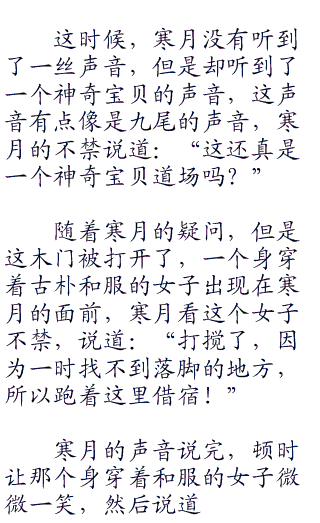 这时候，寒月没有听到
了一丝声音，但是却听到了
一个神奇宝贝的声音，这声
音有点像是九尾的声音，寒
月的不禁说道：“这还真是
一个神奇宝贝道场吗？”
随着寒月的疑问，但是
这木门被打开了，一个身穿
着古朴和服的女子出现在寒
月的面前，寒月看这个女子
不禁，说道：“打搅了，因
为一时找不到落脚的地方，
所以跑着这里借宿！”
寒月的声音说完，顿时
让那个身穿着和服的女子微
微一笑，然后说道